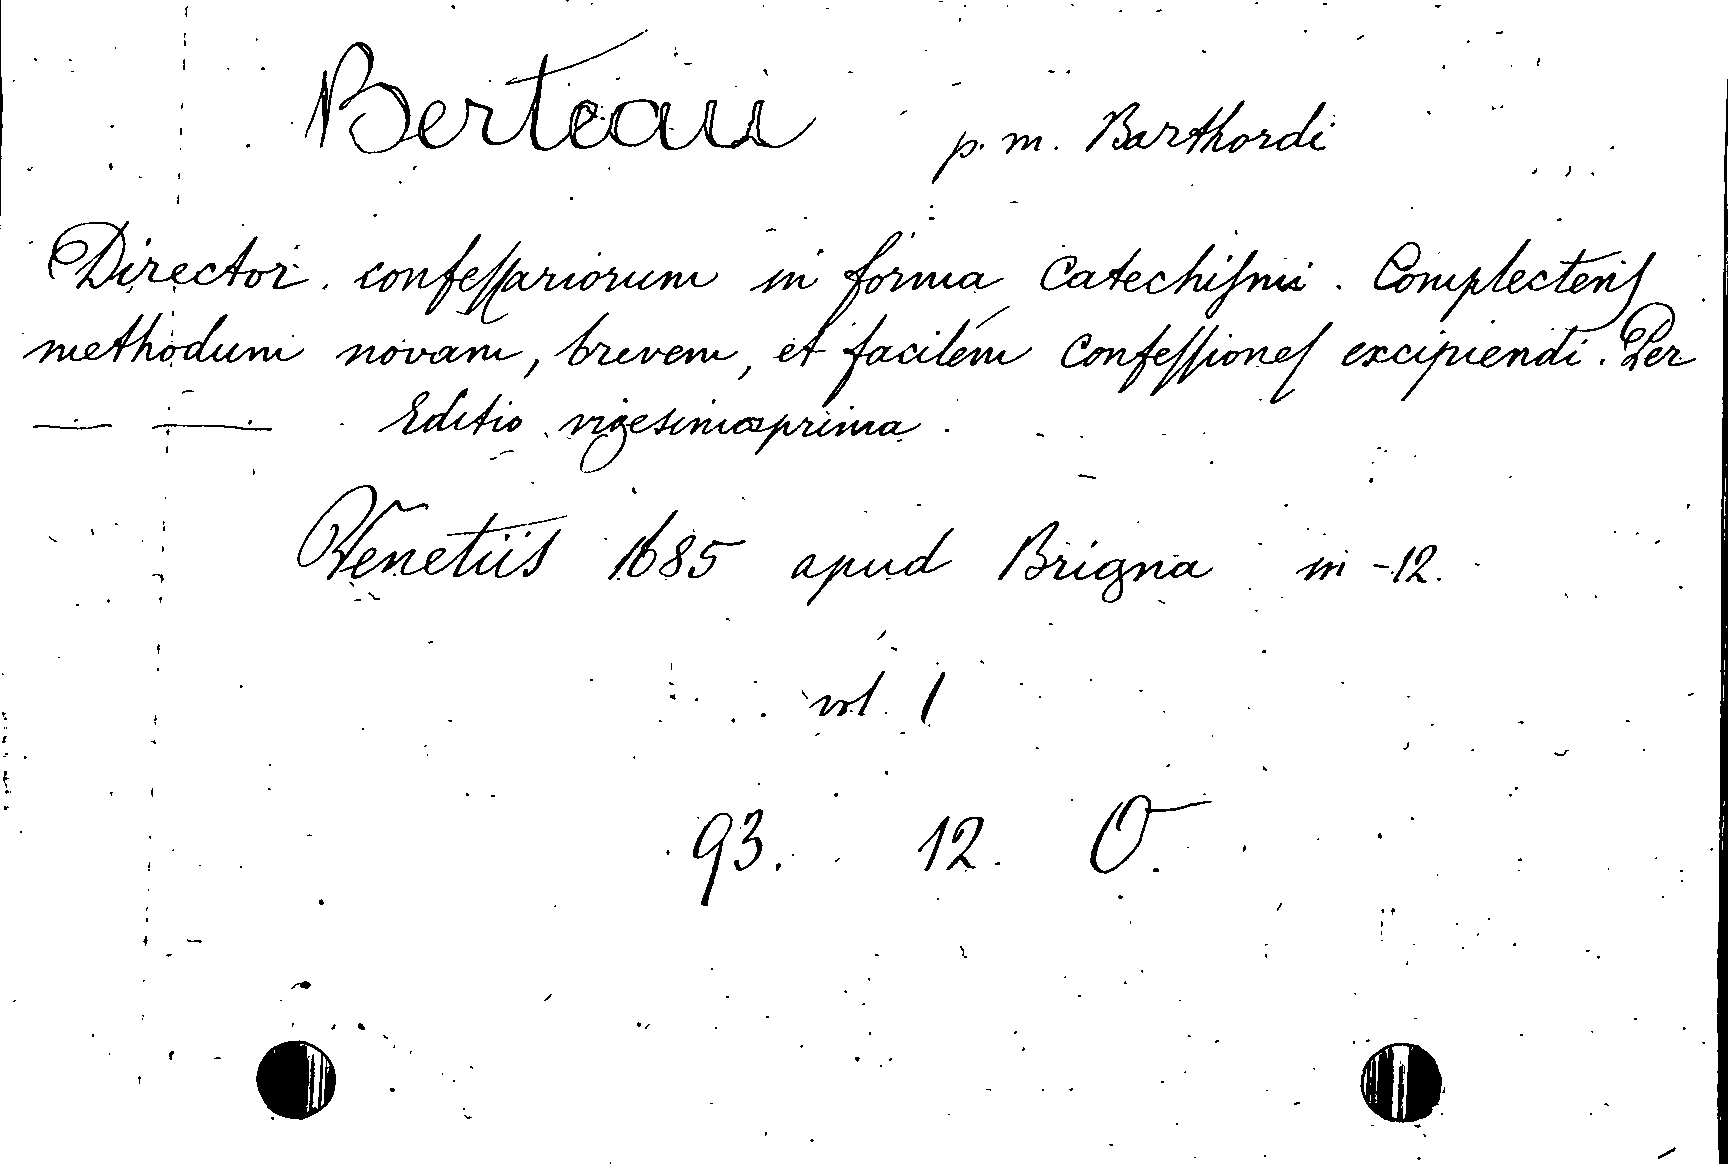 Berteau p. m. Barthordi
Director. confessariorum in forma Catechismi. Complectens
methodum novam, brevem, et facilem confessiones excipiendi. Per
— — Editio vigesimaprima.
Venetiis 1685 apud Brigna in-12.
vol. 1
93. 12. O.